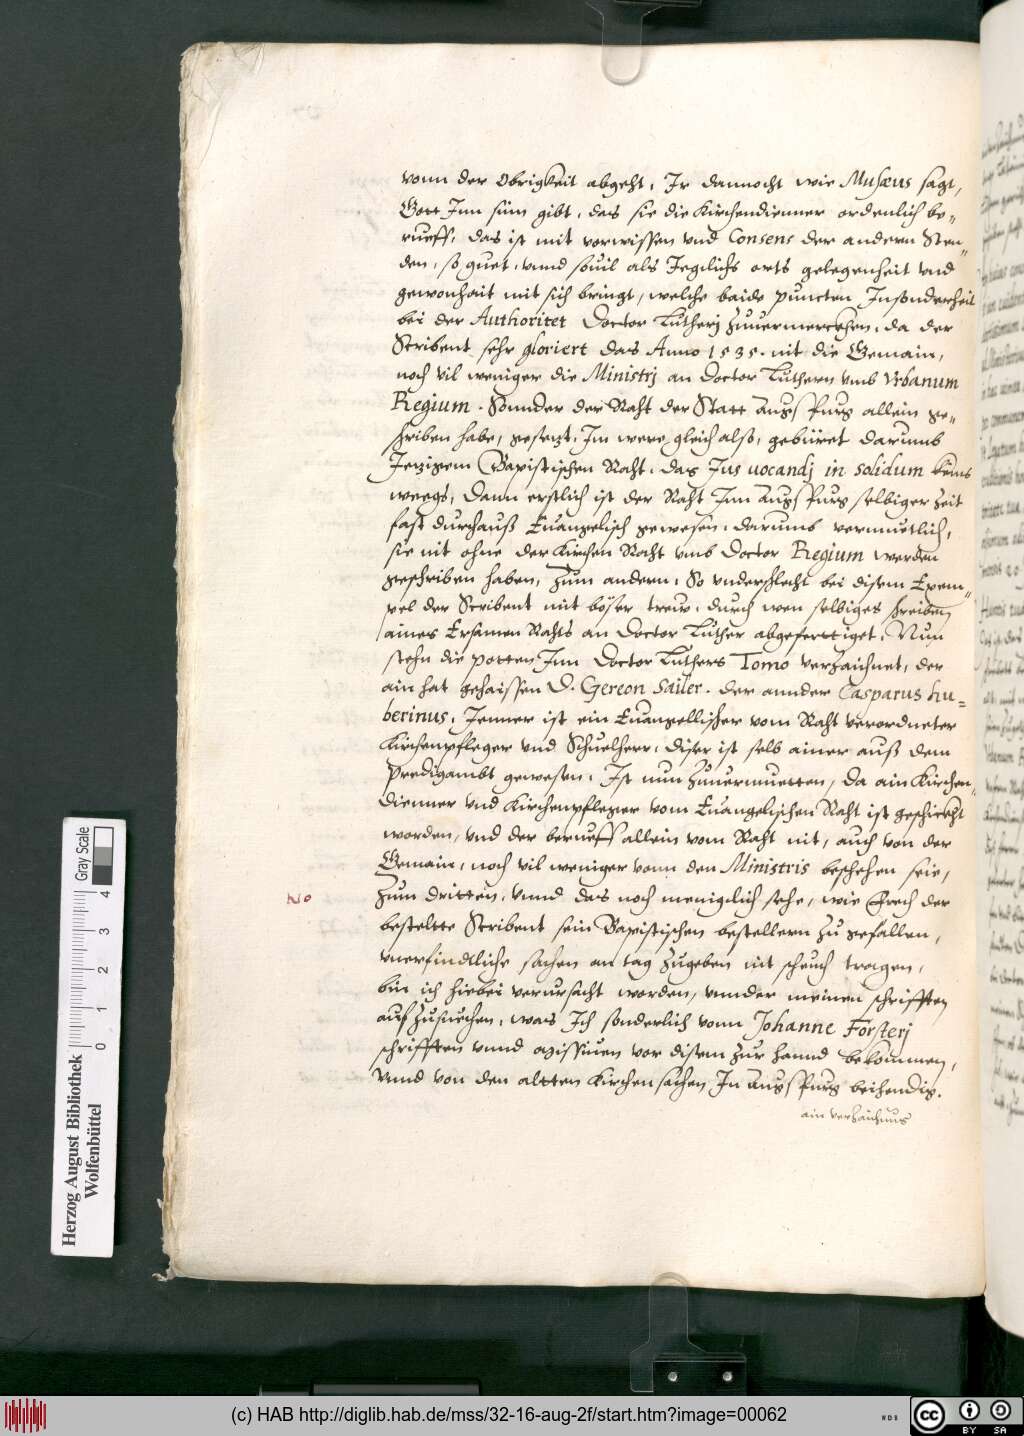 vonn der Obrigkeit abgeht. Ir dannocht wie Musæus sagt,
Gott Inn sinn gibt, das sie die Kirchendienner ordenlich be=
rueff, das ist mit vorwissen vnd Consens der andern Sten=
den, so guet, vnnd souil als Jegclichs orts gelegenheit vnd
gewonhait mit sich bringt, welche baide puncten Insonderheit
bei der Authoritet Doctor Lutherj zuuermerckhen, da der
Scribent sehr gloriert das Anno 1535. nit die Gemain,
noch vil weniger die Ministrj an Doctor Luthern vmb Vrbanum
Regium. Sonnder der Raht der Statt Augspurg allein ge=
schriben habe, gesetzt, Im were gleich also, gebüret darumb
Jetzigem Papistischen Raht, das Jus uocandj in solidum keins
weegs, Dann erstlich ist der Raht Inn Augspurg selbiger zeit
fast durchauß Euangelisch gewesen, darumb vermuetlich,
sie nit ohne der Kirchen Raht vmb Doctor Regium werden
geschriben haben, Zum andern, So vnderschlecht bei disem Exem=
pel der Scribent mit böser trew, durch wen selbiges schreiben
aines Ersamen Rahts an Doctor Luther abgefertiget. Nun
stehn die potten Inn Doctor Luthers Tomo verzaichnet, der
ain hat gehaissen D. Gereon Sailer. der annder Casparus hu=
berinus, Jenner ist ein Euangellischer vom Raht verordneter
Kirchenpfleger vnd Schuelherr, diser ist selb ainer auß dem
Predigambt gewesen. Ist nun zuuermuetten, da ain Kirchen
dienner vnd Kirchenpfleger vom Euangelischen Raht ist geschickht
worden, vnd der berueff allein vom Raht nit, auch von der
Gemain, noch vil weniger vonn den Ministris beschehen seie,
Zum dritten, vnnd das noch meniglich sehe, wie frech der
bestelte Scribent sein Papistischen bestellern zu gefallen,
vnerfindtliche sachen an tag zugeben nit scheuch tragen,
bin ich hiebei verursacht worden, vnnder meinen schrifften
auf zusuechen, was Ich sonderlich vonn Johanne Forsterj
schrifften vnnd missiuen vor disem zur hannd bekommen,
Vnnd von den altten Kirchensachen In Augspurg beihendig.
ain verzaichnus
Herzog August Bibliothek
Wolfenbüttel
0 1 2 3 4
Gray Scale
(c) HAB http://diglib.hab.de/mss/32-16-aug-2f/start.htm?image=00062
WDB
cc
BY SA